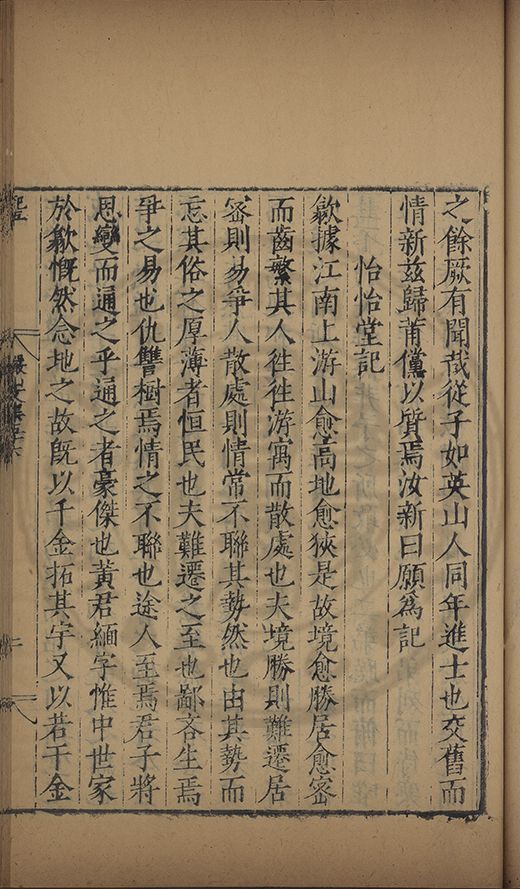 之餘厥有聞哉從子如英山人同年進士也交舊而
情新茲歸莆儻以質焉汝新曰願爲記
怡怡堂記
歙據江南上游山愈高地愈狹是故境愈勝居愈密
而齒繁其人徃徃游寓而散處也夫境勝則難遷居
密則易爭人散處則情常不聯其勢然也由其勢而
忘其俗之厚薄者恒民也夫難遷之至也鄙吝生焉
爭之易也仇讐樹焉情之不聯也途人至焉君子將
思變而通之乎通之者豪傑也黃君緬字惟中世家
於歙慨然念地之故旣以千金拓其宇又以若干金